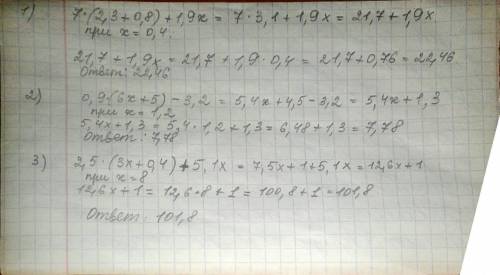 1) 7·(2,3+0,8)+1,9x = 7·3,1+1,9x = 21,7+1,9x
при x=0,4.
21,7+1,9x = 21,7+1,9·0,4 = 21,7+0,76 = 22,46
Ответ: 22,46
2) 0,9·(6x+5)-3,2 = 5,4x+4,5-3,2 = 5,4x+1,3
при x=1,2
5,4x+1,3 = 5,4·1,2+1,3 = 6,48+1,3 = 7,78
Ответ: 7,78
3) 2,5·(3x+0,4)+5,1x = 7,5x+1+5,1x = 12,6x+1
при x=8
12,6x+1 = 12,6·8+1 = 100,8+1 = 101,8
Ответ: 101,8